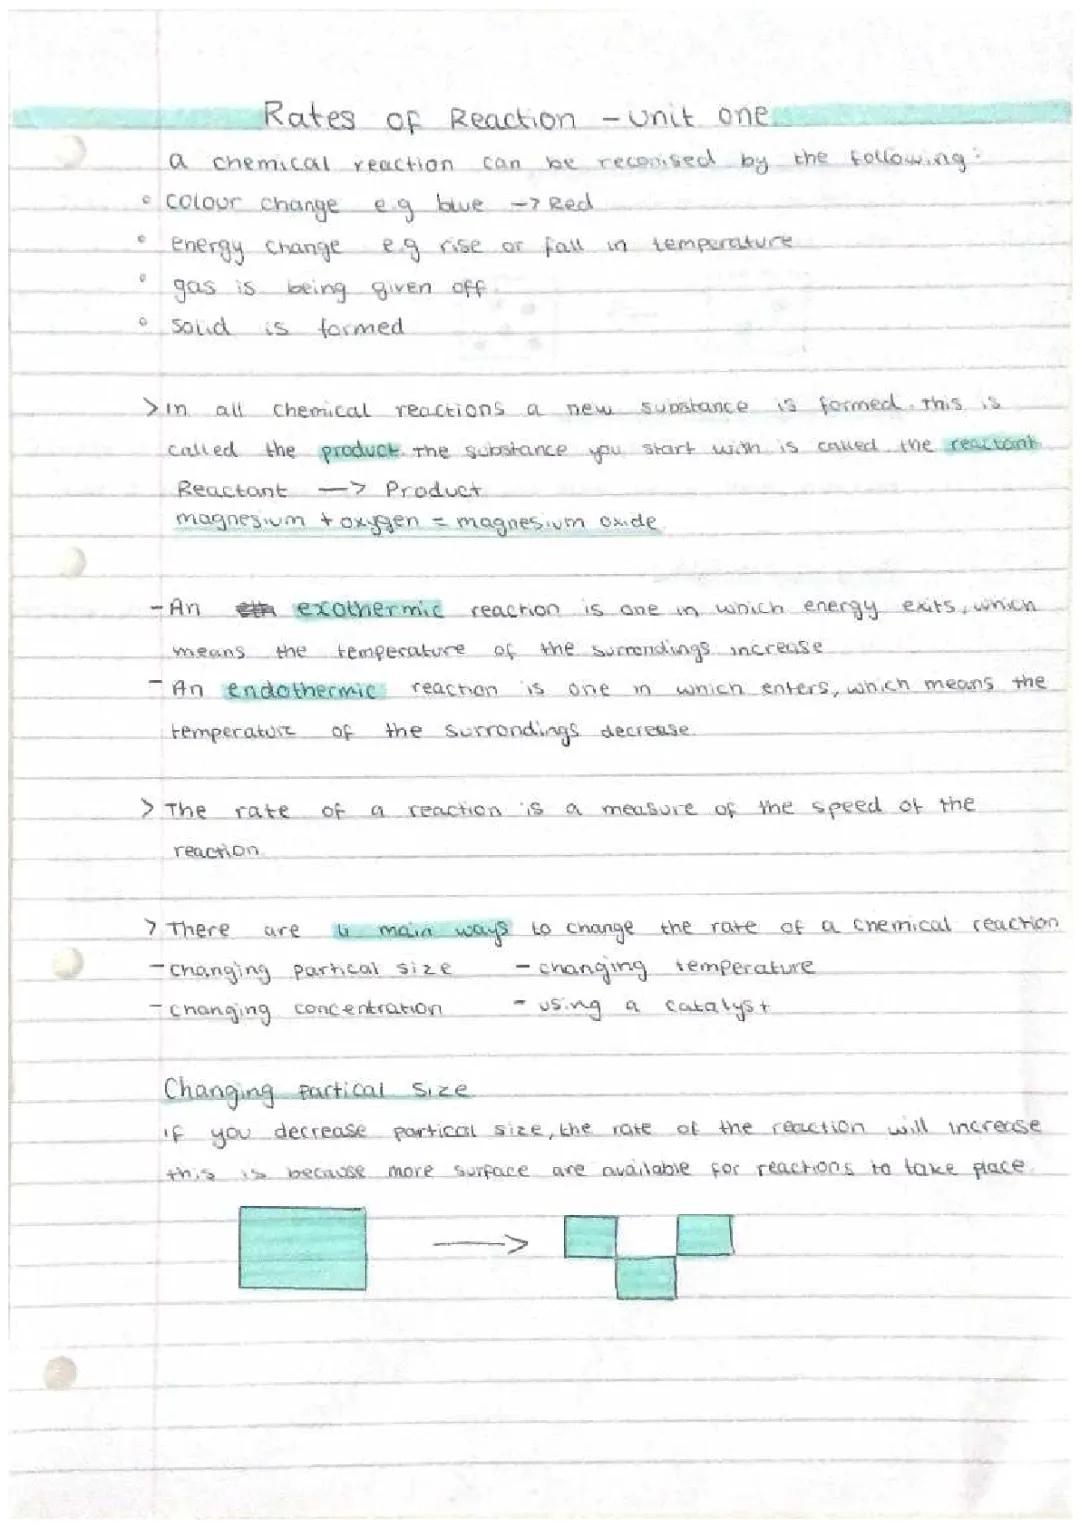 Rates of Reaction - unit one
a chemical reaction can be reconised by the following:
• colour change e.g blue -> Red
• energy change e.g rise or fall in temperature
• gas is being given off
• solid is formed
> in all chemical reactions a new substance is formed. this is
called the product. the substance you start with is called the reactant
Reactant -> Product
magnesium + oxygen = magnesium oxide
- An exothermic reaction is one in which energy exits, which
means the temperature of the surrondings increase
- An endothermic reaction is one in which enters, which means the
temperature of the surrondings decrease
> The rate of a reaction is a measure of the speed of the
reaction
> There are 4 main ways to change the rate of a chemical reaction
- changing partical size - changing temperature
- changing concentration - using a catalyst
Changing partical size
if you decrease partical size, the rate of the reaction will increase
this is because more surface are available for reactions to take place.